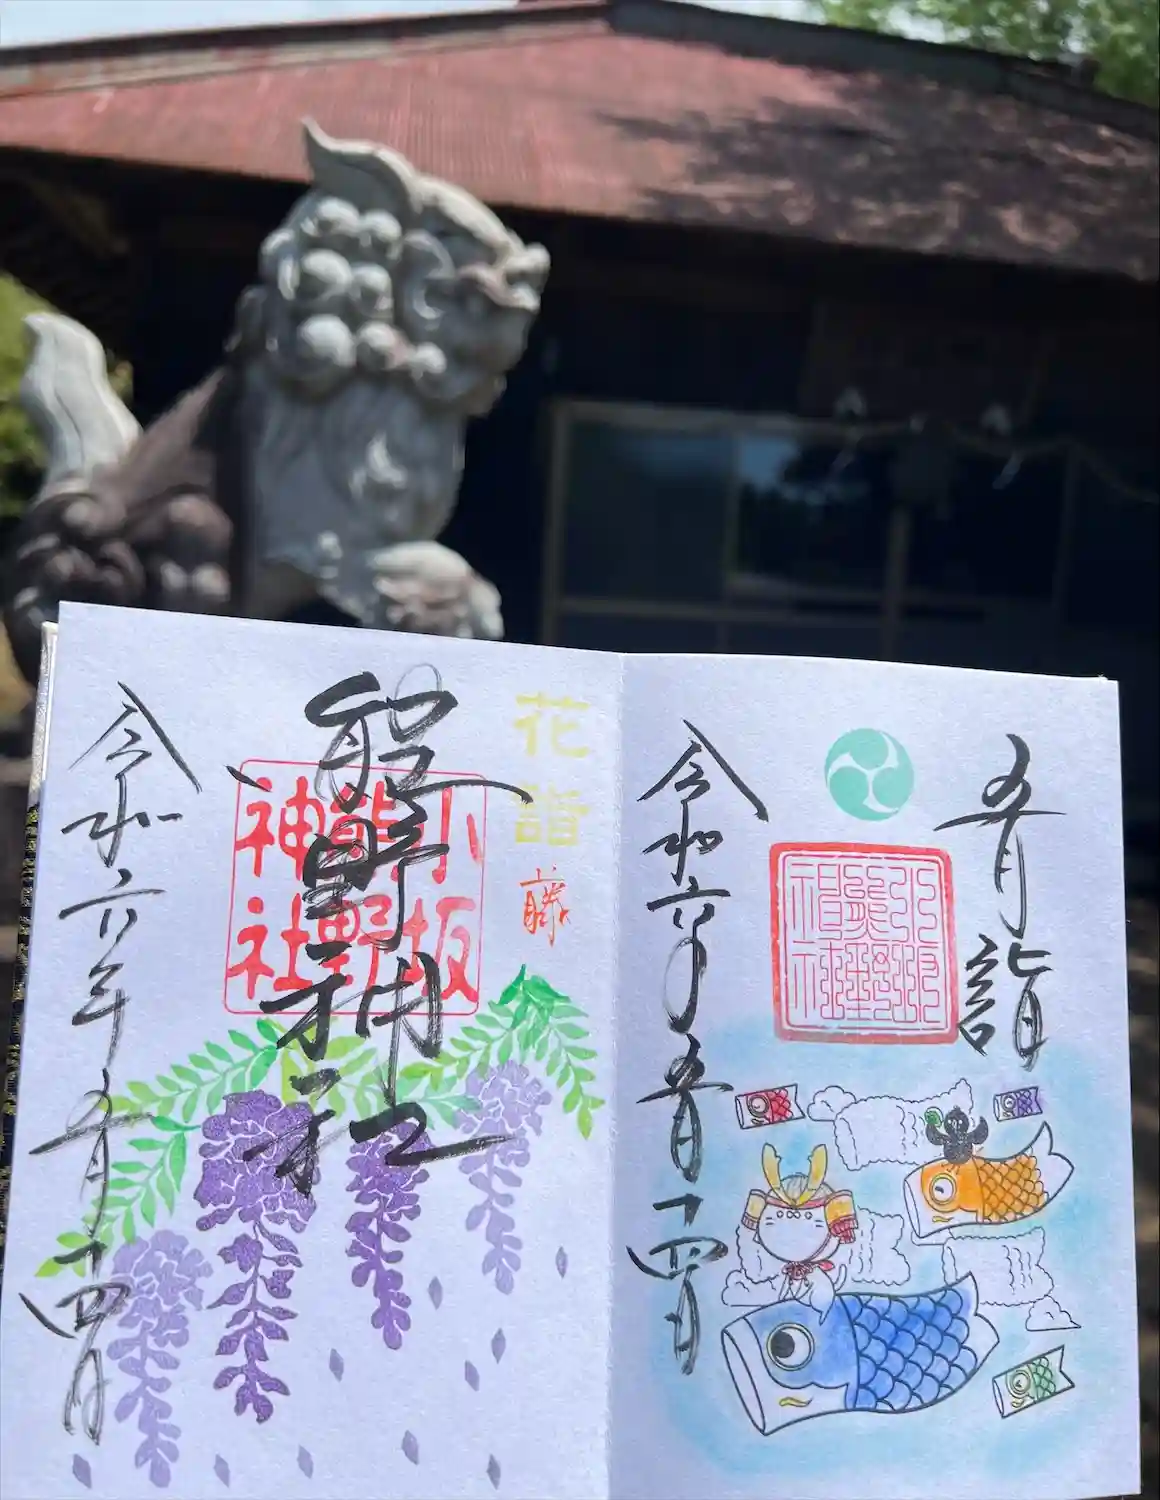 五月詣
令和六年五月十四日
小坂
熊野
神社
花詣
藤
熊野神社
令和六年五月十四日